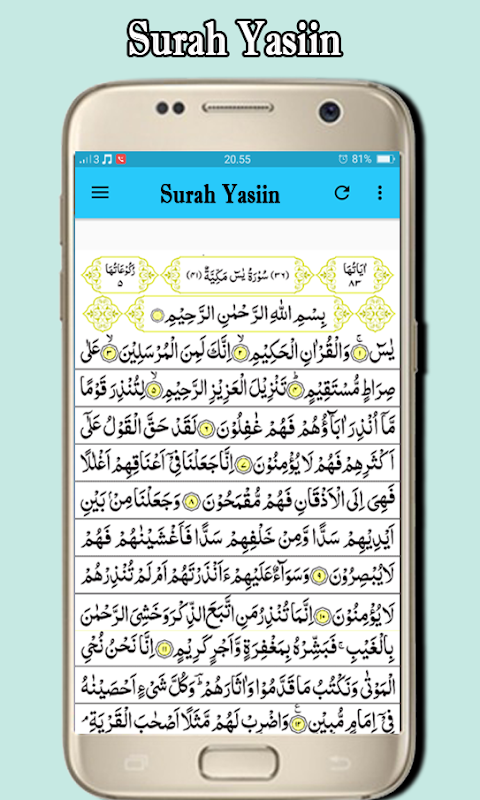 Surah Yasiin
3 20.55 81%
Surah Yasiin
اٰيَاتُهَا ٨٣ (٣٦) سُوْرَةُ يٰسٓ مَكِّيَّةٌ (٤١) رُكُوْعَاتُهَا ٥
بِسْمِ اللّٰهِ الرَّحْمٰنِ الرَّحِيْمِ
يٰسٓ ۚ ١ وَالْقُرْاٰنِ الْحَكِيْمِ ٢ اِنَّكَ لَمِنَ الْمُرْسَلِيْنَ ٣ عَلٰى
صِرَاطٍ مُّسْتَقِيْمٍ ٤ تَنْزِيْلَ الْعَزِيْزِ الرَّحِيْمِ ٥ لِتُنْذِرَ قَوْمًا
مَّاۤ اُنْذِرَ اٰبَآؤُهُمْ فَهُمْ غٰفِلُوْنَ ٦ لَقَدْ حَقَّ الْقَوْلُ عَلٰٓى
اَكْثَرِهِمْ فَهُمْ لَا يُؤْمِنُوْنَ ٧ اِنَّا جَعَلْنَا فِيْۤ اَعْنَاقِهِمْ اَغْلٰلًا
فَهِيَ اِلَى الْاَذْقَانِ فَهُمْ مُّقْمَحُوْنَ ٨ وَجَعَلْنَا مِنْۢ بَيْنِ
اَيْدِيْهِمْ سَدًّا وَّمِنْ خَلْفِهِمْ سَدًّا فَاَغْشَيْنٰهُمْ فَهُمْ
لَا يُبْصِرُوْنَ ٩ وَسَوَآءٌ عَلَيْهِمْ ءَاَنْذَرْتَهُمْ اَمْ لَمْ تُنْذِرْهُمْ
لَا يُؤْمِنُوْنَ ١٠ اِنَّمَا تُنْذِرُ مَنِ اتَّبَعَ الذِّكْرَ وَخَشِيَ الرَّحْمٰنَ
بِالْغَيْبِ ۚ فَبَشِّرْهُ بِمَغْفِرَةٍ وَّاَجْرٍ كَرِيْمٍ ١١ اِنَّا نَحْنُ نُحْيِ
الْمَوْتٰى وَنَكْتُبُ مَا قَدَّمُوْا وَاٰثَارَهُمْ ؕ وَكُلَّ شَيْءٍ اَحْصَيْنٰهُ
فِيْۤ اِمَامٍ مُّبِيْنٍ ١٢ وَاضْرِبْ لَهُمْ مَّثَلًا اَصْحٰبَ الْقَرْيَةِ ۘ